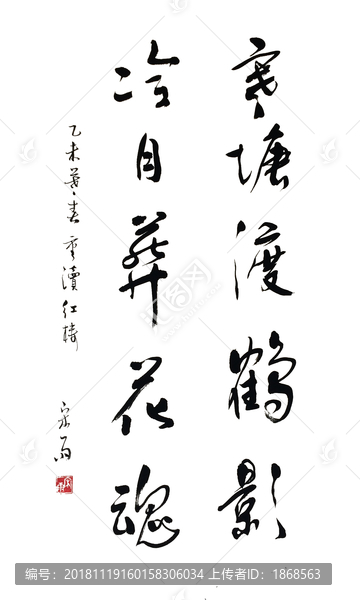 寒塘渡鹤影
冷月葬花魂
乙未暮春重讀红楼
编号:20181119160158306034 上传者ID:1868563